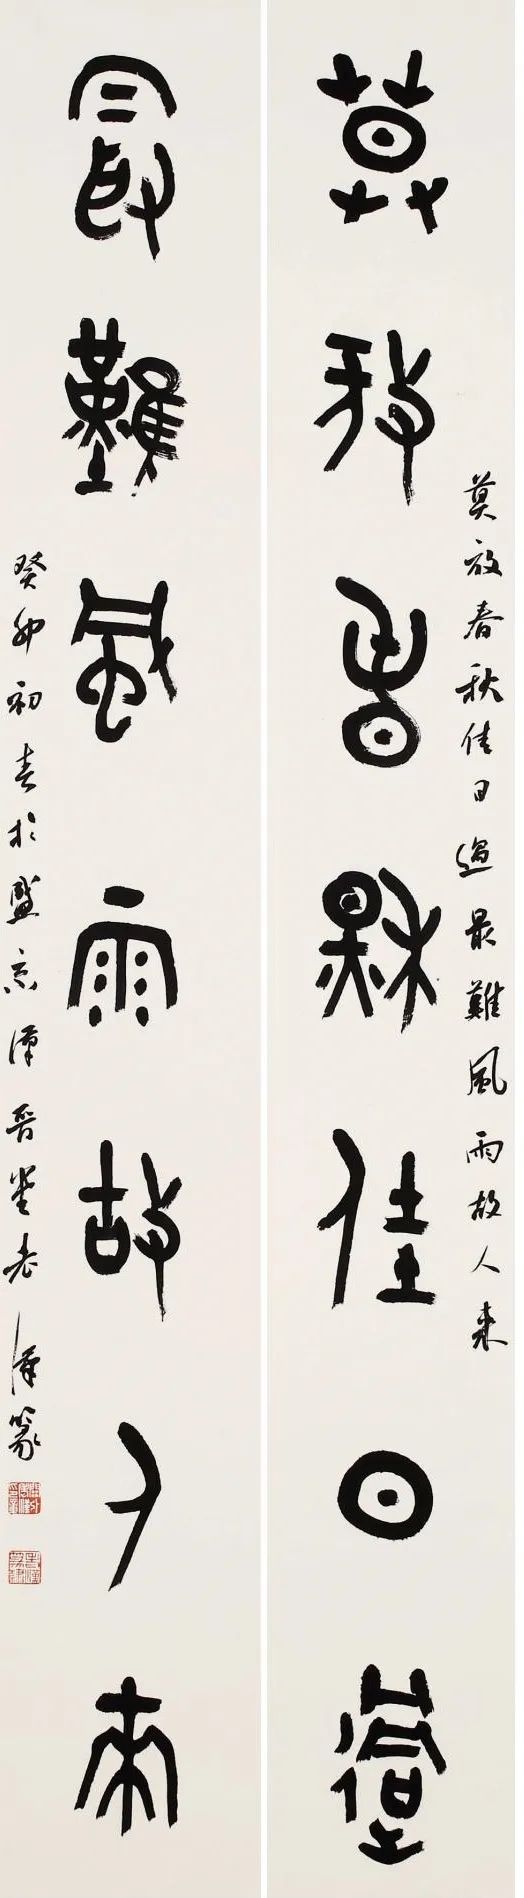 莫放春秋佳日過最難風雨故人來
莫放春秋佳日過
最難風雨故人來
癸卯初春於盛京潭晉堂老潭篆